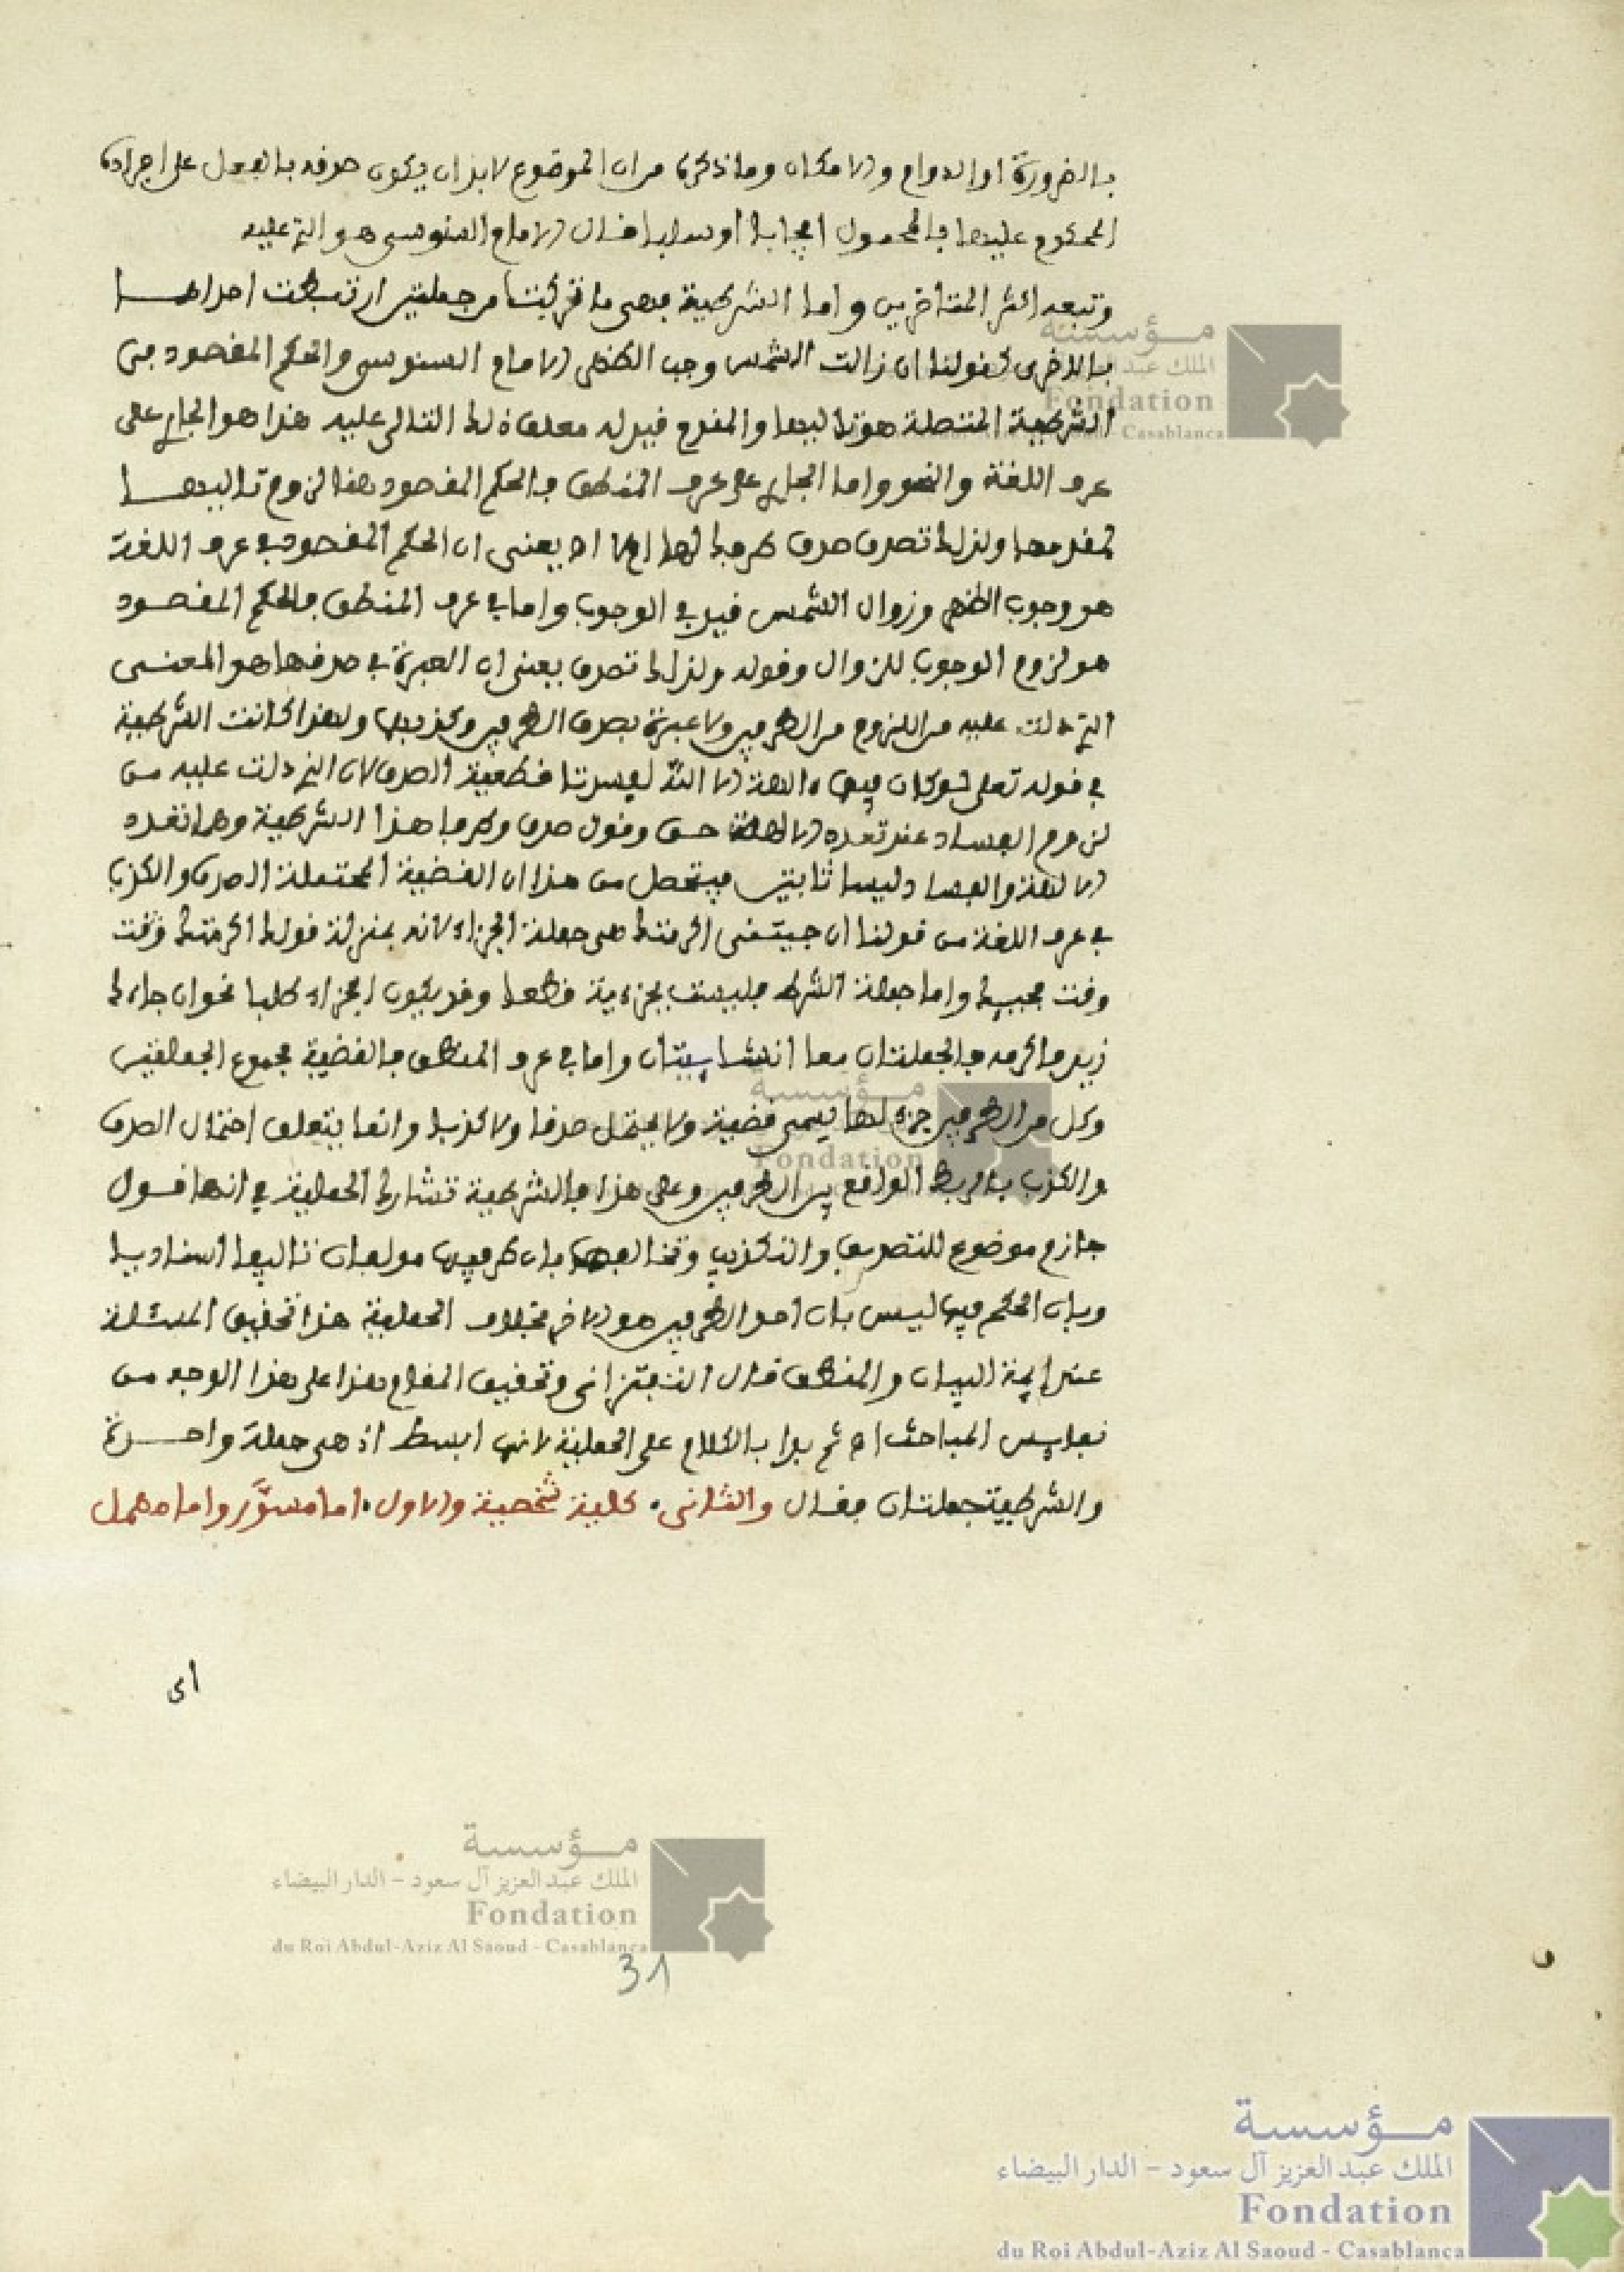 بالضرورة او الدوام والامكان وما ذكره من ان الموضوع لابد ان يكون صدقه بالفعل على افراده
المحكوم عليها بالمحمول ايجابا او سلبا قال الامام السنوسي هو الذي عليه
وتبعه اكثر المتاخرين واما الشرطية فهي ما تركبت من جملتين ارتبطت احداهما
بالاخرى كقولنا ان زالت الشمس وجب الظهر الامام السنوسي والحكم المقصود من
الشرطية المتصلة هو تاليها والمقدم قيد له معلق ذلك التالي عليه هذا هو الجاري على
عرف اللغة والنحو واما الجاري على عرف المنطق فالحكم المقصود هنا لزوم تاليها
لمقدمها ولذلك تصدق صدق طرفاها ام لا اه يعني ان الحكم المقصود في عرف اللغة
هو وجوب الظهر وزوال الشمس قيد في الوجوب واما في عرف المنطق فالحكم المقصود
هو لزوم الوجوب للزوال وقوله ولذلك تصدق يعني ان العبرة في صدقها هو المعنى
الذي دلت عليه من اللزوم من الطرفين ولا عبرة بصدق الطرفين وكذبهما ولهذا كانت الشرطية
في قوله تعلى لو كان فيهما ءالهة الا الله لفسدتا قطعية الصدق لان الذي دلت عليه من
لزوم الفساد عند تعدد الالهة حق وقول صدق وطرفا هذا الشرطية وهما تعدد
الالهة والفساد ليسا ثابتين فيتحصل من هذا ان القضية المحتملة الصدق والكذب
في عرف اللغة من قولنا ان جيتني اكرمتك هي جملة الجزاء لانه بمنزلة قولك اكرمتك وقت
وقت مجيئك واما جملة الشرط فليست بخبرية قطعا وقد يكون الجزاء طلبا نحو ان جاءك
زيد فاكرمه فالجملتان معا انشاييتان واما في عرف المنطق فالقضية مجموع الجملتين
وكل من الطرفين جزء لها ليس قضية ولا يحتمل صدقا ولا كذبا وانما يتعلق احتمال الصدق
والكذب بالربط الواقع بين الطرفين وعلى هذا فالشرطية تشارك الحملية في انها قول
جازم موضوع للتصديق والتكذيب وتخالفها بان طرفيها مولفان تاليفا اسناديا
وبان الحكم فيها ليس بان احد الطرفين هو الاخر بخلاف الحملية هذا تحقيق المسئلة
عند ايمة البيان والمنطق قال التفتزاني وتحقيق المقام هذا على هذا الوجه من
نفايس المباحث اه ثم بدا بالكلام على الحملية لانها ابسط اذ هي جملة واحدة
والشرطية جملتان فقال والثاني . كلية شخصية والاول . اما مسور واما مهمل
اى
31
مؤسسة
الملك عبد العزيز آل سعود - الدار البيضاء
Fondation
du Roi Abdul-Aziz Al Saoud - Casablanca